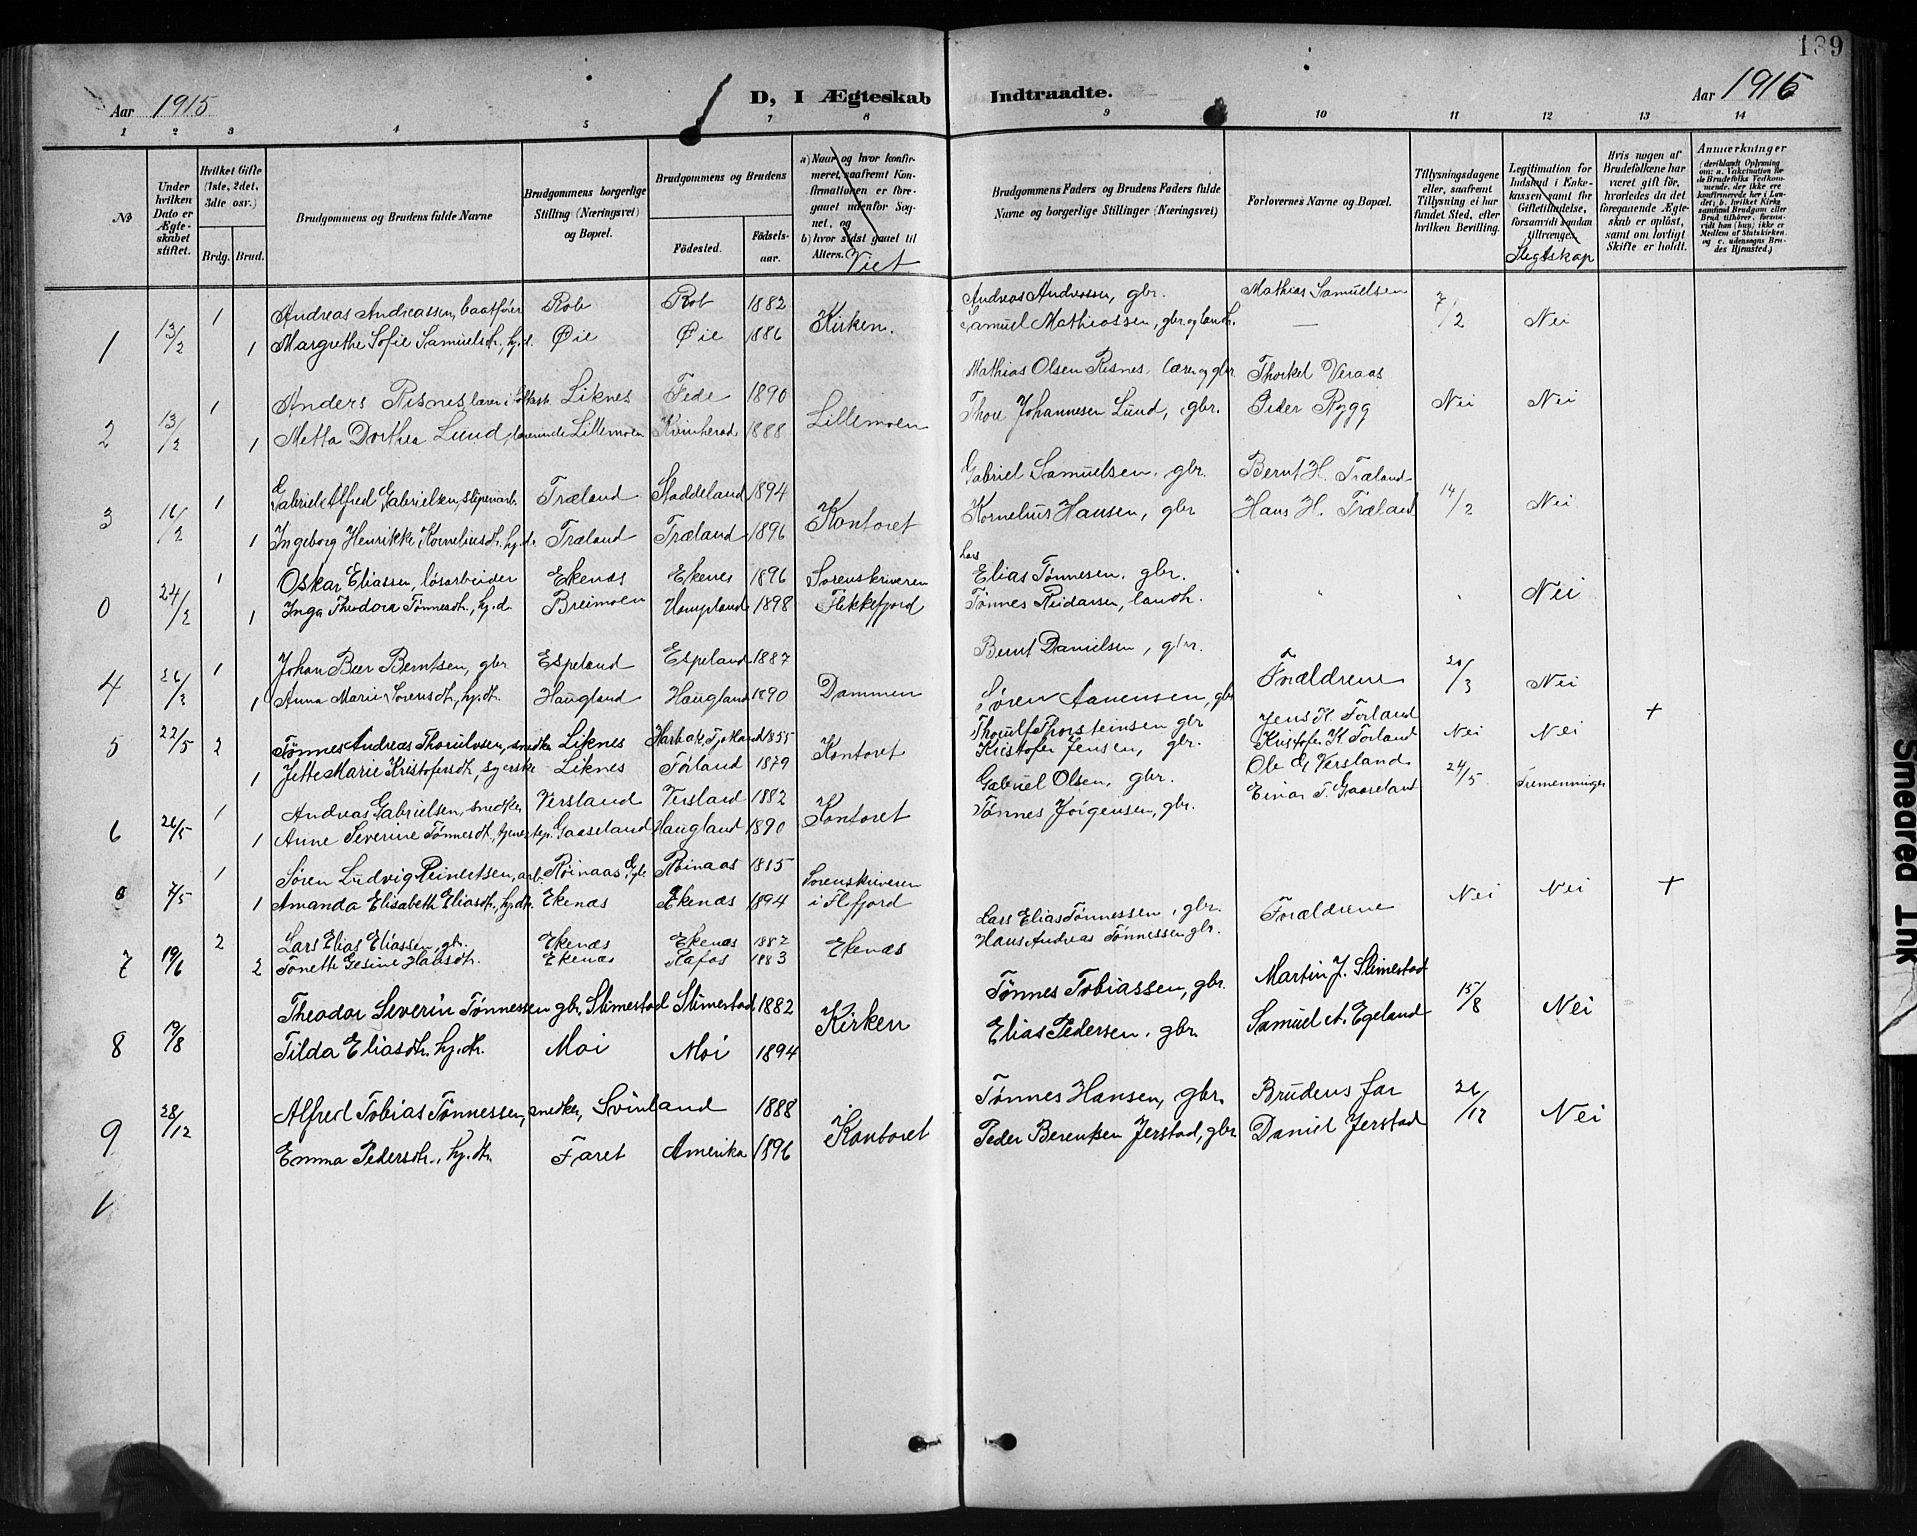 139
Aar 1915
D, I Ægteskab Indtraadte.
Aar 1915
1 2 3 4 5 7 8 9 10 11 12 13 14
No
Under hvilken Dato er Ægteskabet stiftet.
Hvilket Gifte (1ste, 2det, 3dte osv.)
Brdg. Brud.
Brudgommens og Brudens fulde Navne
Brudgommens borgerlige Stilling (Næringsvei) og Bopæl.
Brudgommens og Brudens
Födested. Födselsaar.
a) Naar og hvor konfirmeret, saafremt Konfirmationen er foregaaet udenfor Sognet, og b) hvor sidst gaaet til Alters. Viet
Brudgommens Faders og Brudens Faders fulde Navne og borgerlige Stillinger (Næringsvei)
Forlovernes Navne og Bopæl.
Tillysningsdagene eller, saafremt Tillysning ei har fundet Sted, efter hvilken Bevilling.
Legitimation for Indskud i Enkekassen samt for Giftetilladelse, forsaavidt saadan tiltrænges. Slegtskap
Hvis nogen af Brudefolkene har været gift før, hvorledes da det foregaaende Ægteskab er opløst, samt om lovligt Skifte er holdt.
Anmærkninger
1 13/2 1 Andreas Andreassen, baatfører Rob Rob 1882 Kirken. Andreas Andreassen, gbr. Mathias Samuelsen 7/2 Nei
1 Margrethe Sofie Samuelsdt., hj.d. Øie Øie 1886 Samuel Mathiassen, gbr. og landh. —
2 13/2 1 Anders Risnes lærer i Liknes Fede 1890 Lillemoen Mathias Olsen Risnes, lærer og gbr. Thorkel Veraas Nei Nei
1 Metta Dorthea Lund, lærerinde Lillemoen Kvinherad 1888 Thou Johannesen Lund, gbr. Peder Rygg
3 16/2 1 Gabriel Alfred Gabrielsen, sliperiarb. Træland Staddeland 1894 Kontoret Gabriel Samuelsen, gbr. Bernt H. Træland 14/2 Nei
1 Ingeborg Henrikke Korneliusdt. hj.d. Træland Træland 1896 Kornelius Hansen, gbr Hans H. Træland
0 24/2 1 Oskar Eliassen, løsarbeider Ekenæs Ekenes 1896 Sorenskriveren Lars Elias Tønnesen, gbr. Nei
1 Inga Theodora Tønnesdt., hj.d. Breimoen Hampland 1898 Flekkefjord Tønnes Reidarsen, landh.
4 26/3 1 Johan Beer Berntsen, gbr Espeland Espeland 1887 Dammen Bernt Danielsen, gbr. Forældrene 20/3 Nei
1 Anna Marie Sørensdt., hj.dt. Haugland Haugland 1890 Søren Aanensen, gbr
5 22/5 2 Tønnes Andreas Thorulvsen, snedker Liknes 1855 Kontoret Thorulf Thorsteinsen gbr Jens K. Førland Nei Nei +
1 Jette Marie Kristofersdt., syerske Liknes Førland 1879 Kristofer Jensen, gbr. Kristofer K. Førland
6 26/5 1 Andreas Gabrielsen, snedker Versland Versland 1882 Kontoret Gabriel Olsen, gbr. Ole G Versland 24/5 Tremenninger
1 Anne Severine Tønnesdt., Gaaseland Haugland 1890 Tønnes Jørgensen, gbr. Einar T. Gaaseland
0 7/5 1 Søren Ludvig Reinertsen, arb. Røinaas Røinaas 1885 Sorenskriveren Nei Nei +
1 Amanda Elisabeth Eliasdt., hj.dt. Ekenæs Ekenæs 1894 i Flfjord
7 19/6 2 Lars Elias Eliassen, gbr. Ekenæs Ekenæs 1882 Ekenæs Lars Elias Tønnessen, gbr. Forældrene
2 Tonette Gesine Hansdt. Ekenæs Rafos 1883 Hans Andreas Tønnessen gbr.
8 19/8 Theodor Severin Tønnessen gbr. Slimestad Slimestad 1882 Kirken Tønnes Tobiassen, gbr. Martin J. Slimestad 15/8 Nei
Tilda Eliasdt. hj.dt. Moi Moi 1894 Elias Pedersen, gbr. Samuel A. Egeland
9 28/12 Alfred Tobias Tønnessen, snedker, Svinland 1888 Kontoret Tønnes Hansen, gbr. Brudens far 26/12 Nei
Emma Pedersdt., hj.dt. Faret Amerika 1896 Peder Berentsen Jerstad, gbr. Daniel Jerstad
Smeared Ink